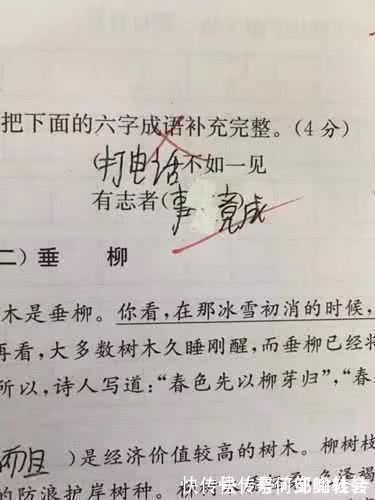 把下面的六字成语补充完整。(4分)
(打电话不如一见
有志者(事 竟成
二)垂 柳
木是垂柳。你看,在那冰雪初消的时候,
再看,大多数树木久睡刚醒,而垂柳已经将
所以,诗人写道:“春色先以柳芽归”,“春
而且)是经济价值较高的树木。柳树枝
的防浪护岸树种。